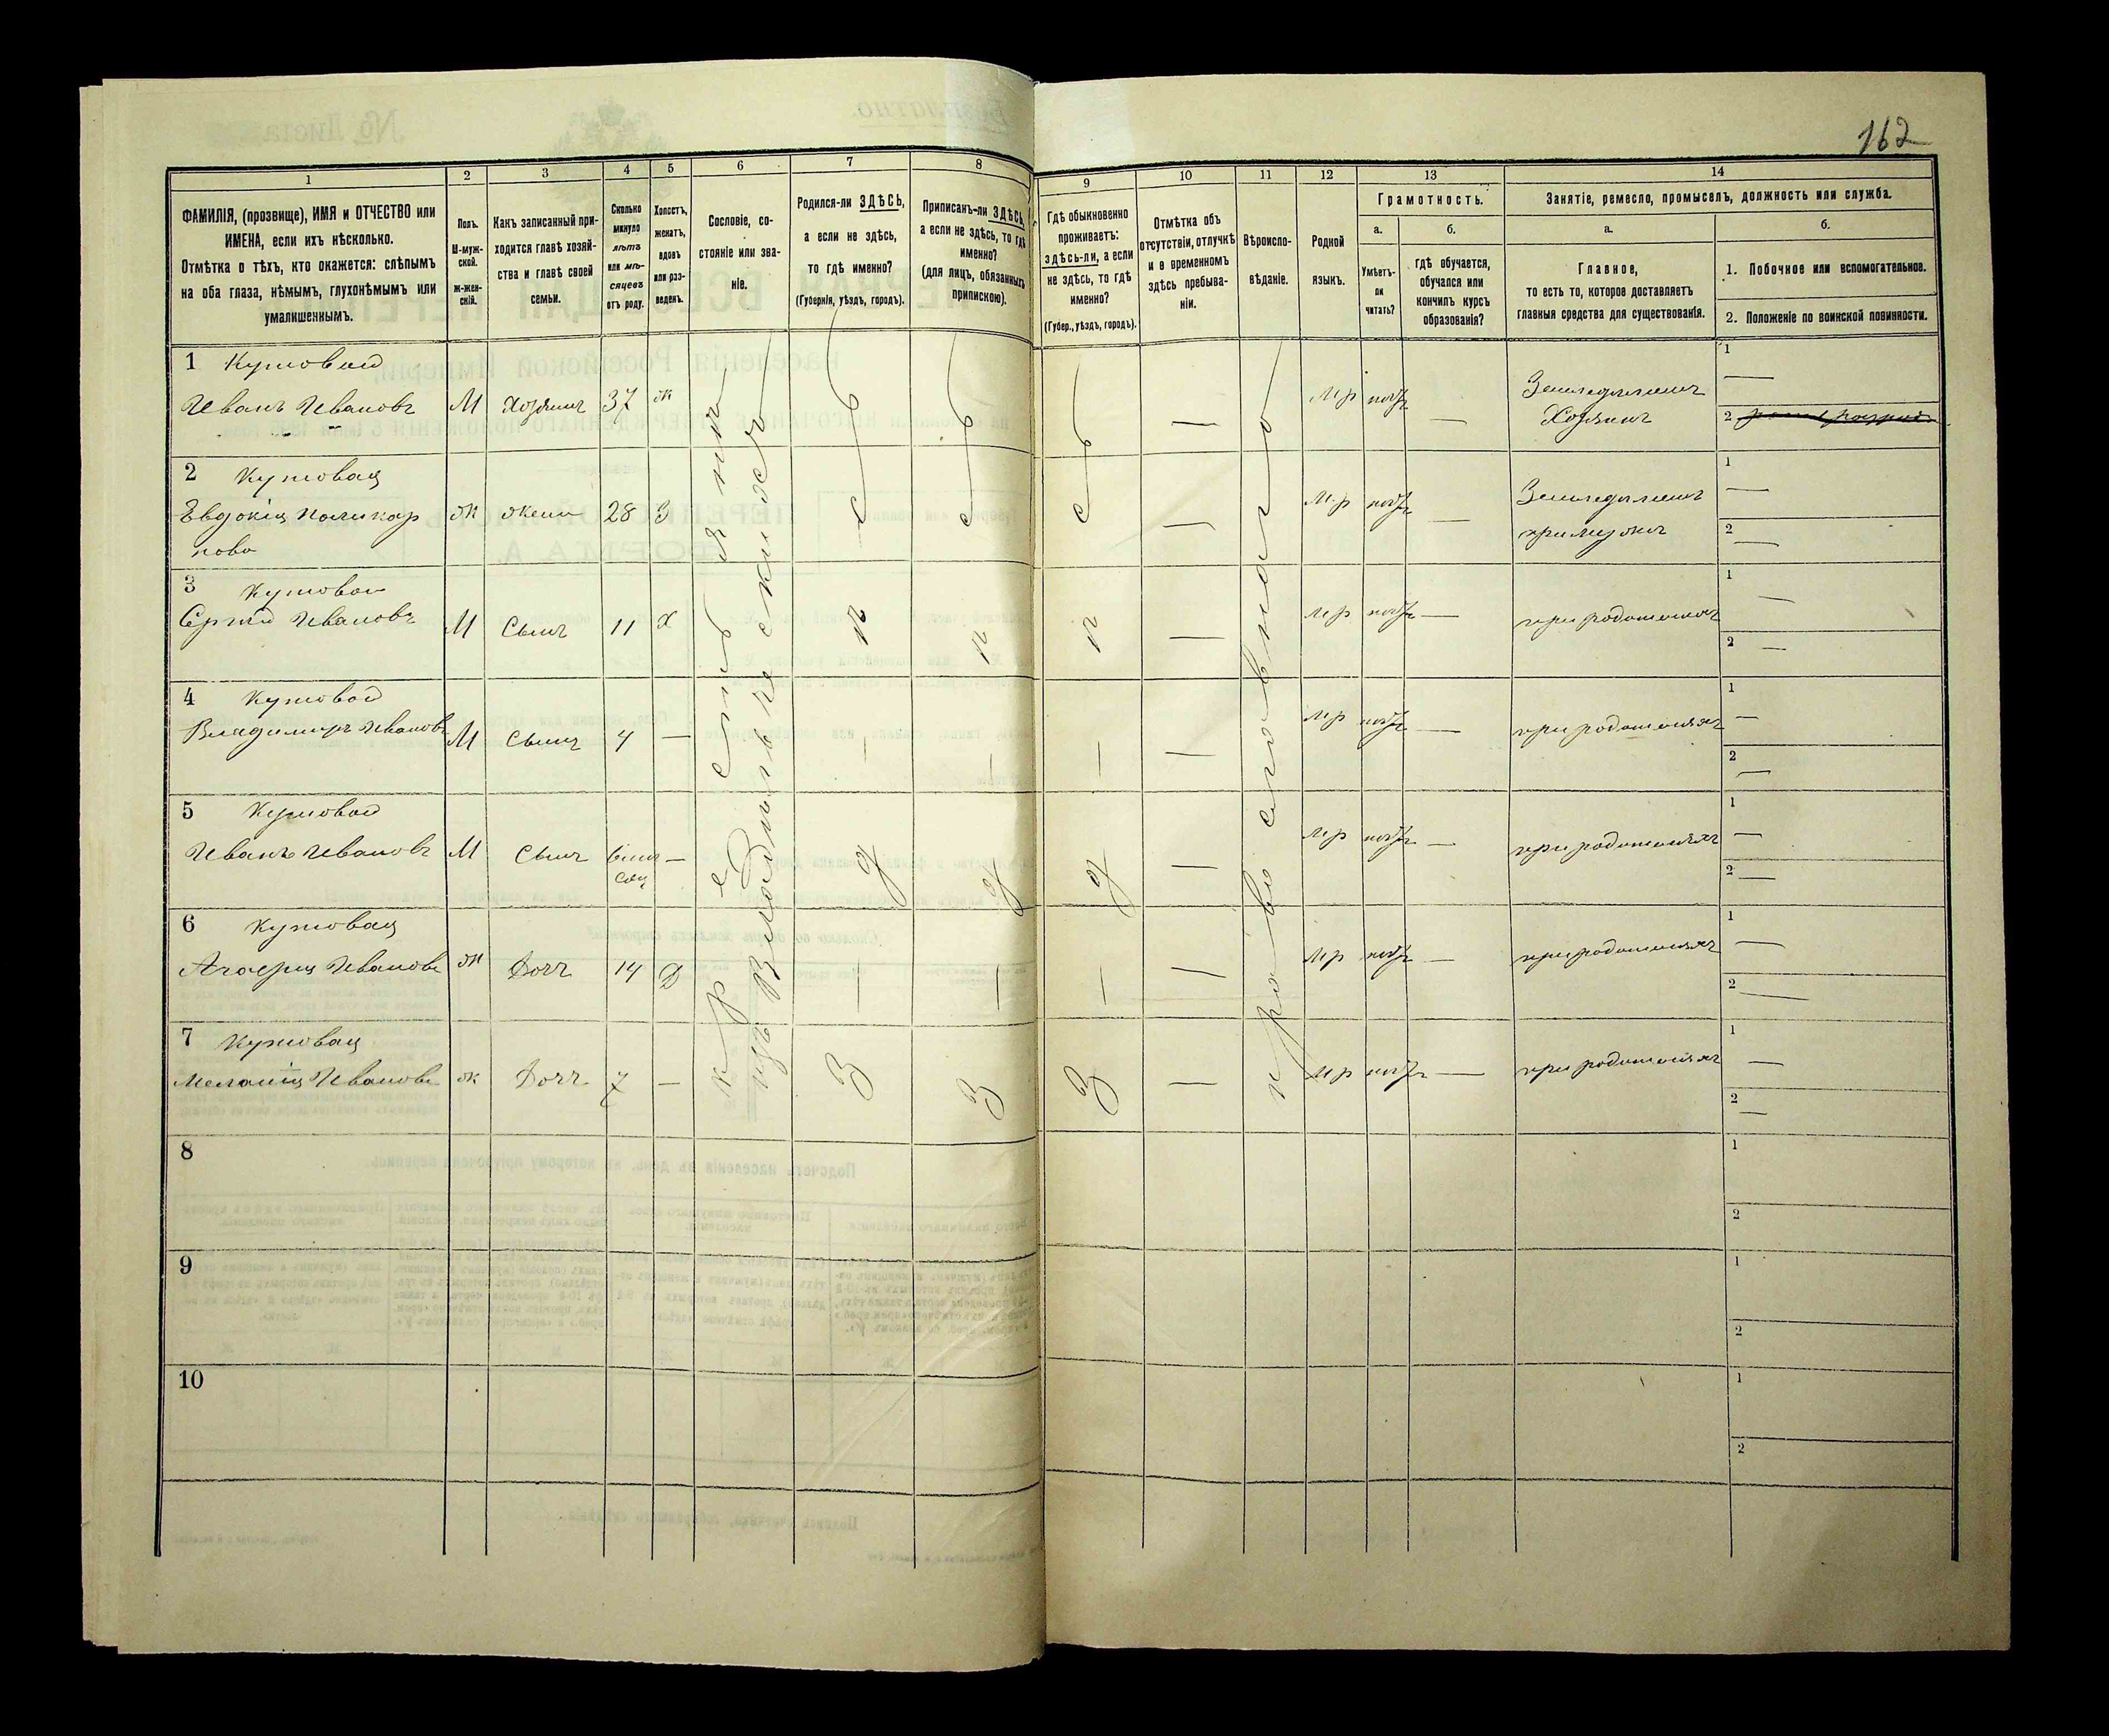 162
1
2
3
4
5
6
7
8
9
10
11
12
13
14
ФАМИЛІЯ, (прозвище), ИМЯ и ОТЧЕСТВО или
ИМЕНА, если ихъ нѣсколько.
Отмѣтка о тѣхъ, кто окажется: слѣпымъ
на оба глаза, нѣмымъ, глухонѣмымъ или
умалишеннымъ.
Полъ.
М-муж-
ской.
Ж-жен-
скій.
Какъ записанный при-
ходится главѣ хозяй-
ства и главѣ своей
семьи.
Сколько
минуло
лѣтъ
или мѣ-
сяцевъ
отъ роду.
Холостъ,
женатъ,
вдовъ
или раз-
веденъ.
Сословіе, со-
стояніе или зва-
ніе.
Родился-ли ЗДѢСЬ,
а если не здѣсь,
то гдѣ именно?
(Губернія, уѣздъ, городъ).
Приписанъ-ли ЗДѢСЬ,
а если не здѣсь, то гдѣ
именно?
(для лицъ, обязанныхъ
припискою).
Гдѣ обыкновенно
проживаетъ:
здѣсь-ли, а если
не здѣсь, то гдѣ
именно?
(Губер., уѣздъ, городъ).
Отмѣтка объ
отсутствіи, отлучкѣ
и о временномъ
здѣсь пребыва-
ніи.
Вѣроиспо-
вѣданіе.
Родной
языкъ.
Грамотность.
а.
б.
Умѣетъ-
ли
читать?
гдѣ обучается,
обучался или
кончилъ курсъ
образованія?
Занятіе, ремесло, промыселъ, должность или служба.
а.
б.
Главное,
то есть то, которое доставляетъ
главныя средства для существованія.
1. Побочное или вспомогательное.
2. Положеніе по воинской повинности.
1 Кутовой
Иванъ Ивановъ М Хозяинъ 37 ж Мр Земледѣлецъ
Хозяинъ
1
2
2 Кутовая
Евдокія Поликар ж жена 28 З Мр Земледѣлецъ
пова при мужѣ
1
2
3 Кутовой
Сергѣй Ивановъ М Сынъ 11 Х Мр при родителяхъ
1
2
4 Кутовой
Владимиръ Ивановъ М Сынъ 4 — Мр при родителяхъ
1
2
5 Кутовой
Иванъ Ивановъ М Сынъ 6 мѣ — Мр при родителяхъ
сяц
1
2
6 Кутовая
Ивановъ ж Дочь 14 Д Мр при родителяхъ
1
2
7 Кутовая
Меланія Иванова ж Дочь 7 — Мр при родителяхъ
1
2
крестьянинъ
изъ
здѣсь
здѣсь
здѣсь
православнаго
8
1
2
9
1
2
10
1
2